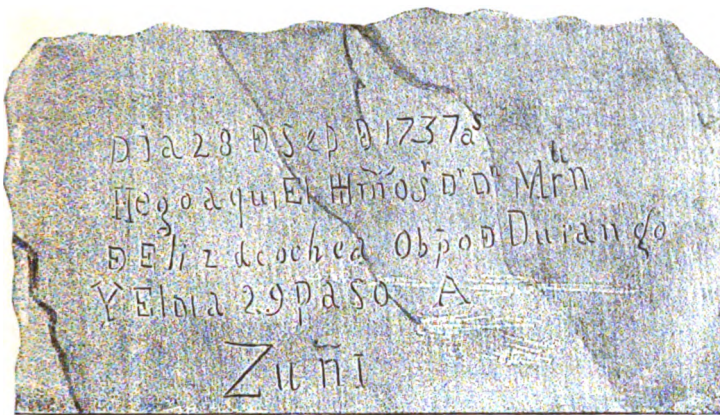 DIa 28 Ð Sep Ð 1737 aˢ
llegoaqui El Hm̃ñosʳ Dʳ Dⁿ Mrñ
Ð Elizdcochea Obp̃o Ð Durango
Y ElDia 29 Paso A
Zuñi